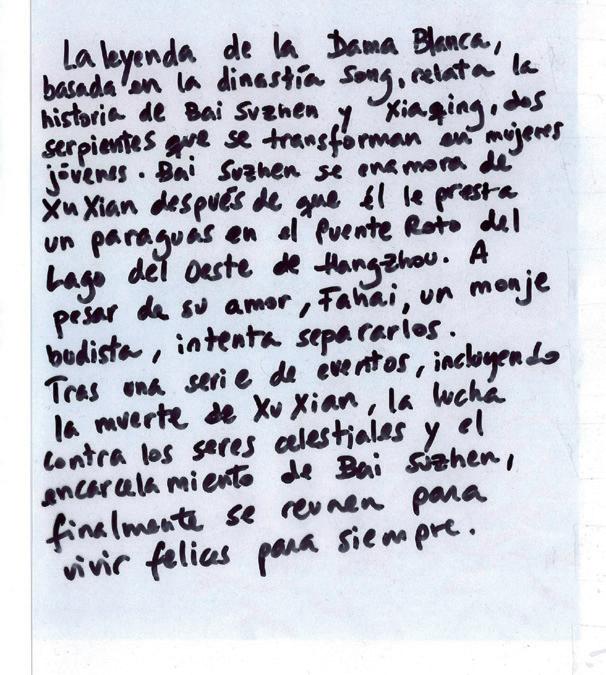 La leyenda de la Dama Blanca,
basada en la dinastía Song, relata la
historia de Bai Suzhen y Xiaqing, dos
serpientes que se transforman en mujeres
jóvenes. Bai Suzhen se enamora de
Xu Xian después de que Él le presta
un paraguas en el Puente Roto del
Lago del Oeste de Hangzhou. A
pesar de su amor, Fahai, un monje
budista, intenta separarlos.
Tras una serie de eventos, incluyendo
la muerte de Xu Xian, la lucha
contra los seres celestiales y el
encarcelamiento de Bai Suzhen,
finalmente se reunen para
vivir felices para siempre.